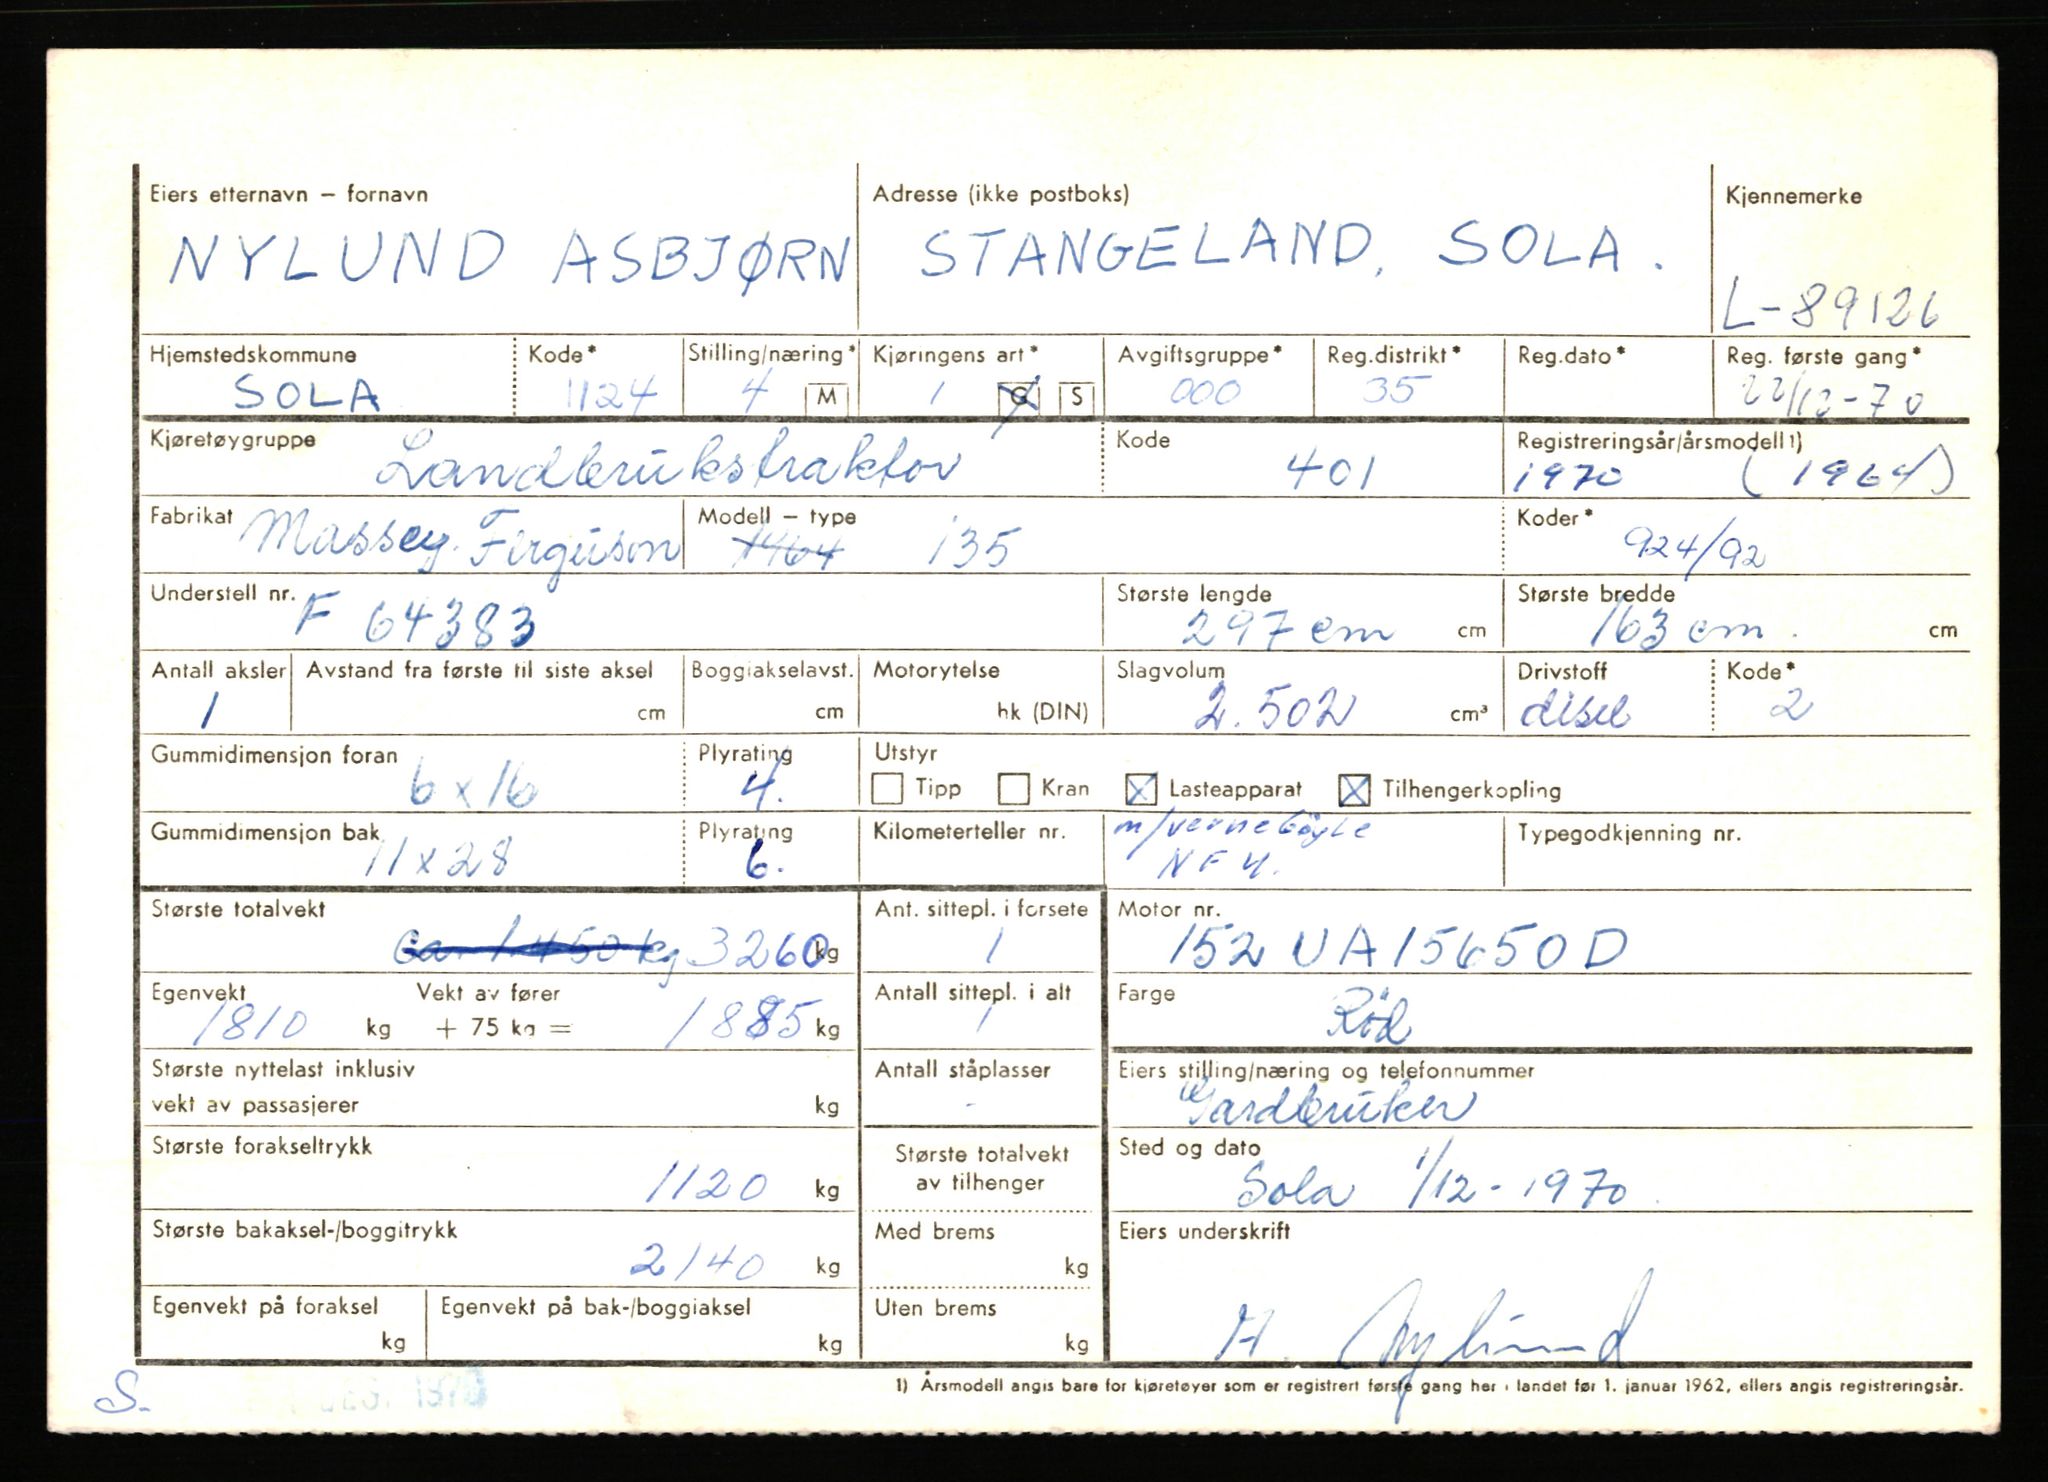 Eiers etternavn – fornavn Adresse (ikke postboks) Kjennemerke
NYLUND ASBJØRN STANGELAND, SOLA.
L-89126
Hjemstedskommune Kode* Stilling/næring* Kjøringens art* Avgiftsgruppe* Reg.distrikt* Reg.dato* Reg. første gang*
SOLA 1124 4 M 1 G S 000 35 22/12-70
Kjøretøygruppe Kode Registreringsår/årsmodell 1)
Landbrukstraktor 401 1970 (1964)
Fabrikat Modell – type Koder*
Massey-Ferguson 1464 135 924/92
Understell nr. Største lengde Største bredde
F 64383 297 cm cm 163 cm. cm
Antall aksler Avstand fra første til siste aksel Boggiakselavst. Motorytelse Slagvolum Drivstoff Kode*
1 cm cm hk (DIN) 2.502 cm³ disel 2
Gummidimensjon foran Plyrating Utstyr
6 x 16 4. Tipp Kran Lasteapparat Tilhengerkopling
Gummidimensjon bak Plyrating Kilometerteller nr. m/vernebøyle Typegodkjenning nr.
11 x 28 6. NF 4.
Største totalvekt Ant. sittepl. i forsete Motor nr.
Ca. 1.450 kg 3260 kg 1 152 UA15650D
Egenvekt Vekt av fører Antall sittepl. i alt Farge
1810 kg + 75 kg = 1885 kg 1 Rød
Største nyttelast inklusiv Antall ståplasser Eiers stilling/næring og telefonnummer
vekt av passasjerer kg - Gardbruker
Største forakseltrykk Største totalvekt Sted og dato
1120 kg av tilhenger Sola 1/12-1970.
Største bakaksel-/boggitrykk Med brems Eiers underskrift
2140 kg kg
Egenvekt på foraksel Egenvekt på bak-/boggiaksel Uten brems
kg kg kg A. Nylund
1) Årsmodell angis bare for kjøretøyer som er registrert første gang her i landet før 1. januar 1962, ellers angis registreringsår.
S. DES. 1970